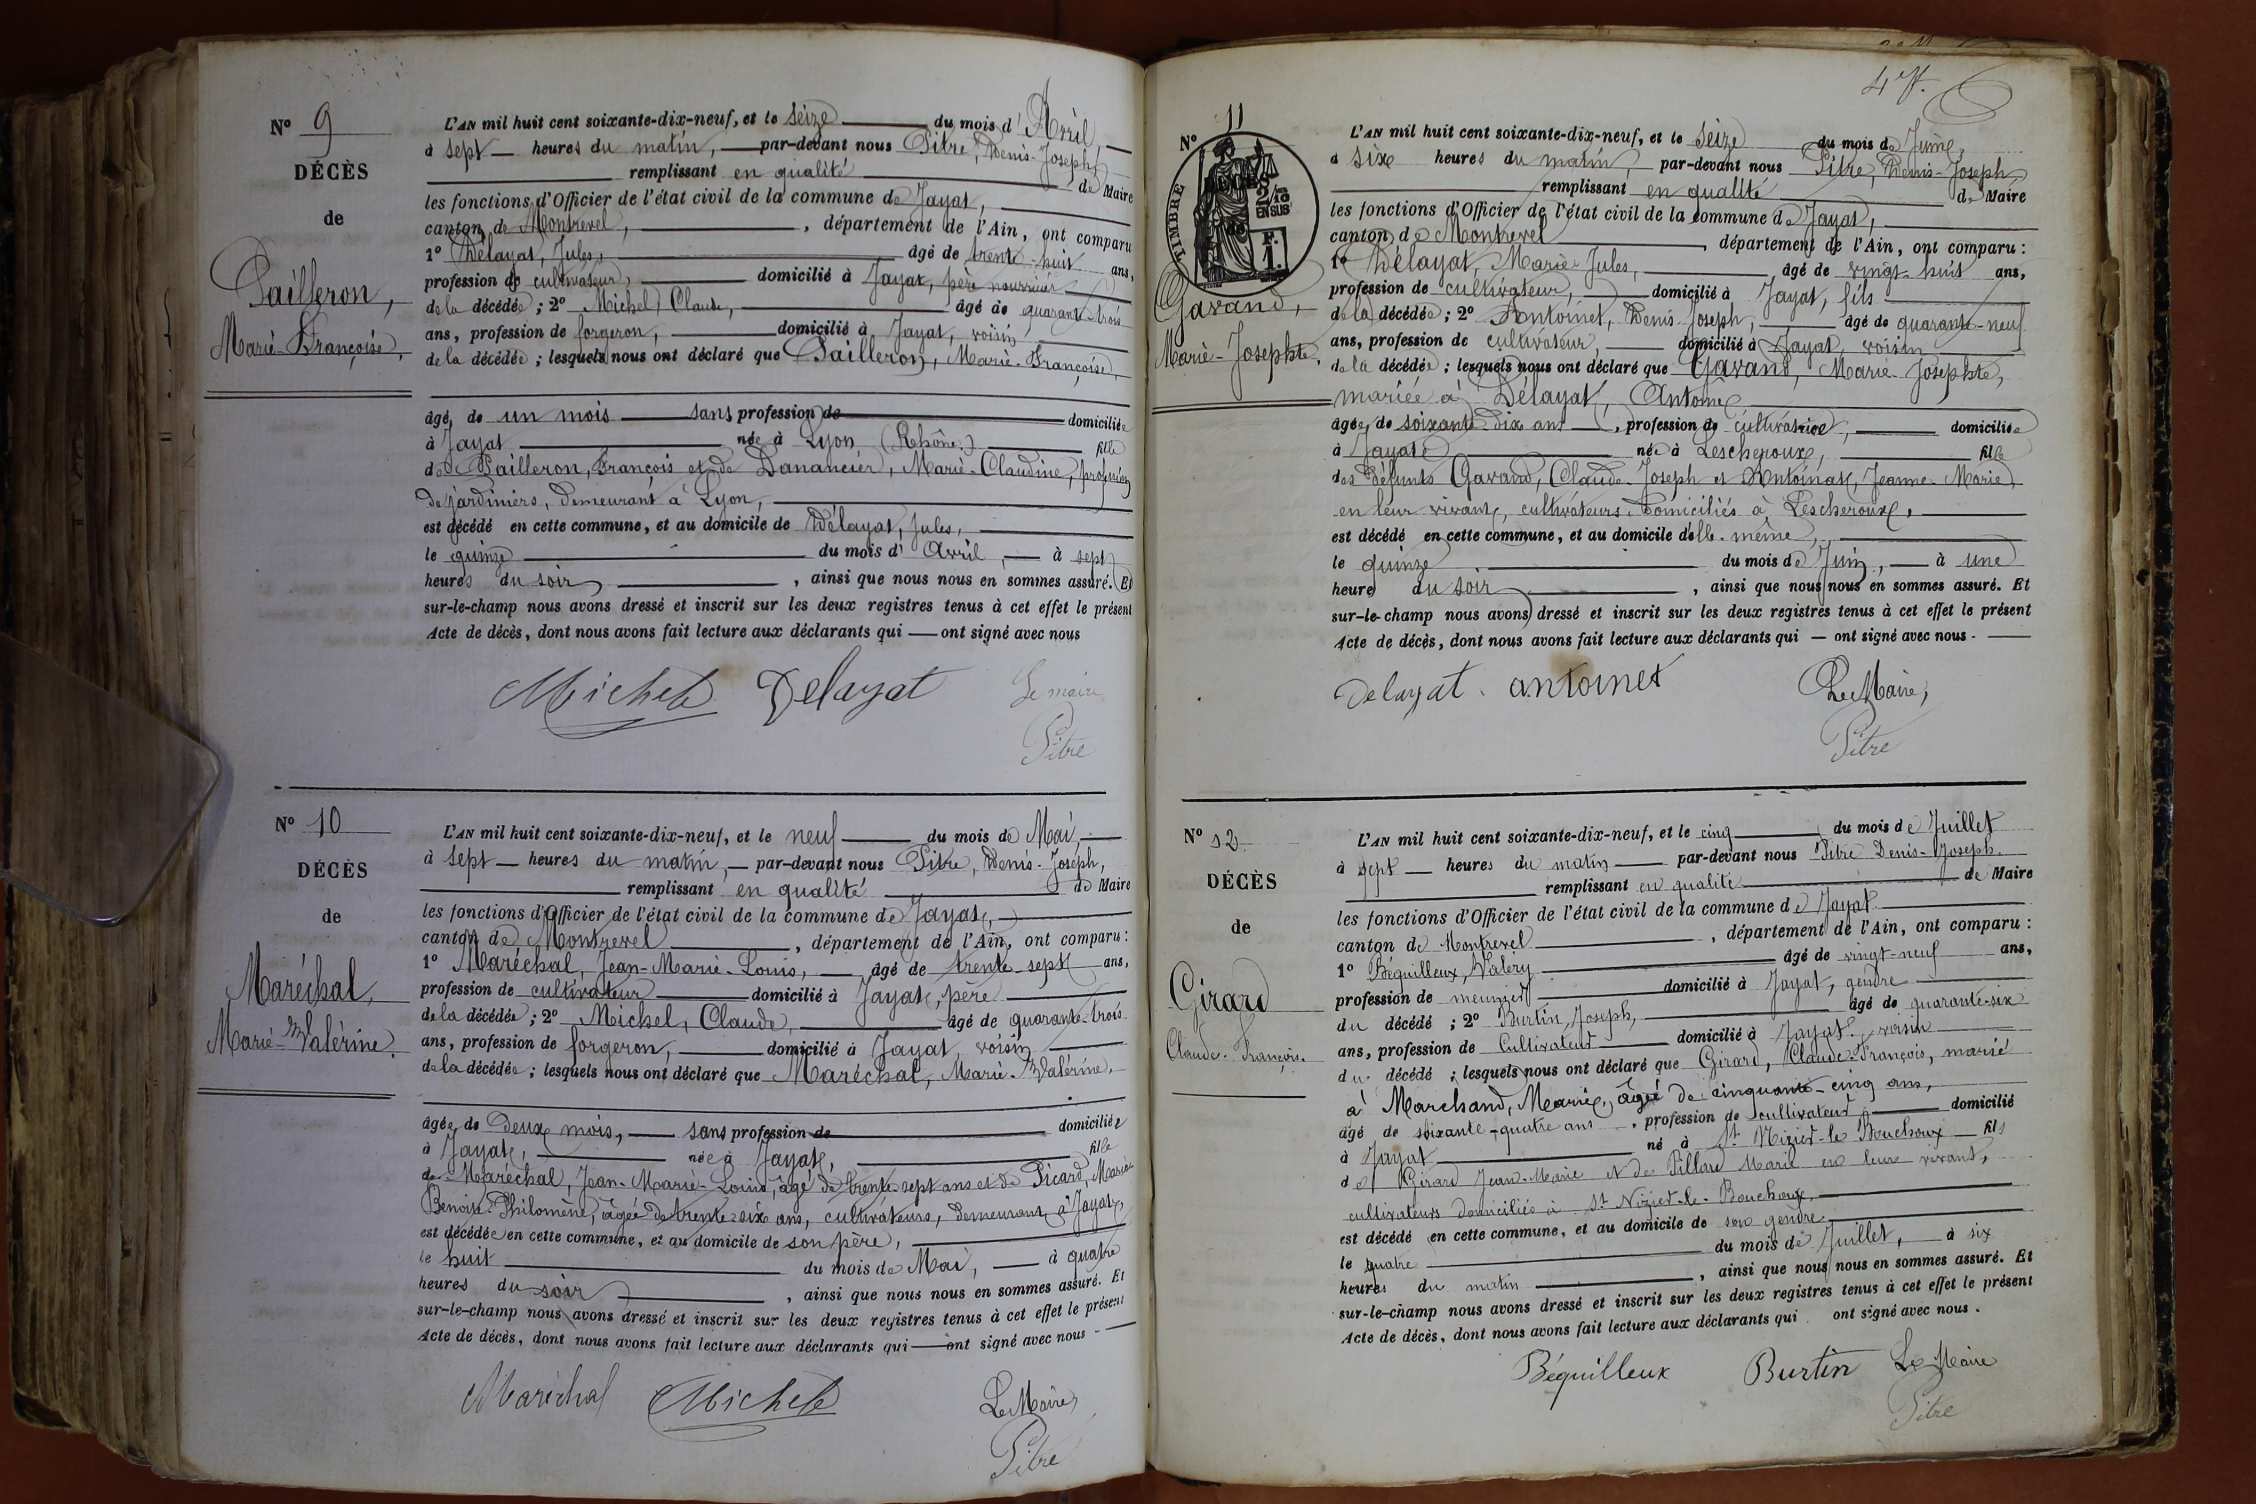 N° 9
DÉCÈS
de
Pailleron,
Marie-Françoise,
L'AN mil huit cent soixante-dix-neuf, et le seize du mois d'Avril,
à sept heures du matin, par-devant nous Pitre, Denis-Joseph,
remplissant en qualité de Maire
les fonctions d'Officier de l'état civil de la commune de Jayat,
canton de Montrevel, département de l'Ain, ont comparu
1° Délayat, Jules, âgé de trente-huit ans,
profession de cultivateur, domicilié à Jayat, père nourricier
de la décédée; 2° Michel, Claude, âgé de quarante-trois
ans, profession de forgeron, domicilié à Jayat, voisin
de la décédée; lesquels nous ont déclaré que Pailleron, Marie-Françoise,
âgé, de un mois sans profession de domiciliée
à Jayat née à Lyon (Rhône.) fille
de Pailleron, François et de Danancier, Marie-Claudine, profession
de jardiniers, demeurant à Lyon,
est décédé en cette commune, et au domicile de Délayat, Jules,
le quinze du mois d'Avril, à sept
heures du soir, ainsi que nous nous en sommes assuré. Et
sur-le-champ nous avons dressé et inscrit sur les deux registres tenus à cet effet le présent
Acte de décès, dont nous avons fait lecture aux déclarants qui ont signé avec nous
Michel Delayat Le maire
Pitre
N° 10
DÉCÈS
de
Maréchal,
Marie-Valérine.
L'AN mil huit cent soixante-dix-neuf, et le neuf du mois de Mai,
à sept heures du matin, par-devant nous Pitre, Denis-Joseph,
remplissant en qualité de Maire
les fonctions d'Officier de l'état civil de la commune de Jayat,
canton de Montrevel, département de l'Ain, ont comparu:
1° Maréchal, Jean-Marie-Louis, âgé de trente-sept ans,
profession de cultivateur domicilié à Jayat, père
de la décédée; 2° Michel, Claude, âgé de quarante-trois
ans, profession de forgeron, domicilié à Jayat, voisin
de la décédée; lesquels nous ont déclaré que Maréchal, Marie-Valérine,
âgée, de deux mois, sans profession de domiciliée
à Jayat, née à Jayat, fille
de Maréchal, Jean-Marie-Louis, âgé de trente-sept ans et de Picard, Marie
Benoite-Philomène, âgée de trente-six ans, cultivateurs, demeurant à Jayat,
est décédée en cette commune, et au domicile de son père,
le huit du mois de Mai, à quatre
heures du soir, ainsi que nous nous en sommes assuré. Et
sur-le-champ nous avons dressé et inscrit sur les deux registres tenus à cet effet le présent
Acte de décès, dont nous avons fait lecture aux déclarants qui ont signé avec nous
Maréchal Michel Le Maire,
Pitre
N° 11
TIMBRE
2/10
EN SUS
Gavand,
Marie-Josephte,
L'AN mil huit cent soixante-dix-neuf, et le seize du mois de Juin,
à six heures du matin, par-devant nous Pitre, Denis-Joseph,
remplissant en qualité de Maire
les fonctions d'Officier de l'état civil de la commune de Jayat,
canton de Montrevel, département de l'Ain, ont comparu:
1° Délayat, Marie-Jules, âgé de vingt-huit ans,
profession de cultivateur, domicilié à Jayat, fils
de la décédée; 2° Antoinet, Denis-Joseph, âgé de quarante-neuf
ans, profession de cultivateur, domicilié à Jayat, voisin
de la décédée; lesquels nous ont déclaré que Gavand, Marie-Josephte,
mariée à Délayat, Antoine
âgée, de soixante-dix ans, profession de cultivatrice, domiciliée
à Jayat née à Lescheroux, fille
des défunts Gavand, Claude-Joseph et Antoinat, Jeanne-Marie,
en leur vivant, cultivateurs domiciliés à Lescheroux,
est décédé en cette commune, et au domicile d'elle-même,
le quinze du mois de Juin, à une
heure du soir, ainsi que nous nous en sommes assuré. Et
sur-le-champ nous avons dressé et inscrit sur les deux registres tenus à cet effet le présent
Acte de décès, dont nous avons fait lecture aux déclarants qui ont signé avec nous.
Delayat. antoinet Le Maire,
Pitre
N° 12
DÉCÈS
de
Girard
Claude-François.
L'AN mil huit cent soixante-dix-neuf, et le cinq du mois de Juillet
à sept heures du matin par-devant nous Pitre Denis-Joseph.
remplissant en qualité de Maire
les fonctions d'Officier de l'état civil de la commune de Jayat
canton de Montrevel, département de l'Ain, ont comparu:
1° Béquilleux, Valéry âgé de vingt-neuf ans,
profession de meunier domicilié à Jayat, gendre
du décédé; 2° Burtin, Joseph, âgé de quarante-six
ans, profession de Cultivateur domicilié à Jayat, voisin
du décédé; lesquels nous ont déclaré que Girard, Claude-François, marié
à Marchand, Marie, âgée de cinquante-cinq ans,
âgé de soixante-quatre ans, profession de cultivateur domicilié
à Jayat né à St Nizier-le-Bouchoux fils
de Girard Jean-Marie et de Pillard Marie en leur vivant,
cultivateurs domiciliés à St Nizier-le-Bouchoux,
est décédé en cette commune, et au domicile de son gendre
le quatre du mois de Juillet, à six
heures du matin, ainsi que nous nous en sommes assuré. Et
sur-le-champ nous avons dressé et inscrit sur les deux registres tenus à cet effet le présent
Acte de décès, dont nous avons fait lecture aux déclarants qui ont signé avec nous.
Béquilleux Burtin Le Maire
Pitre